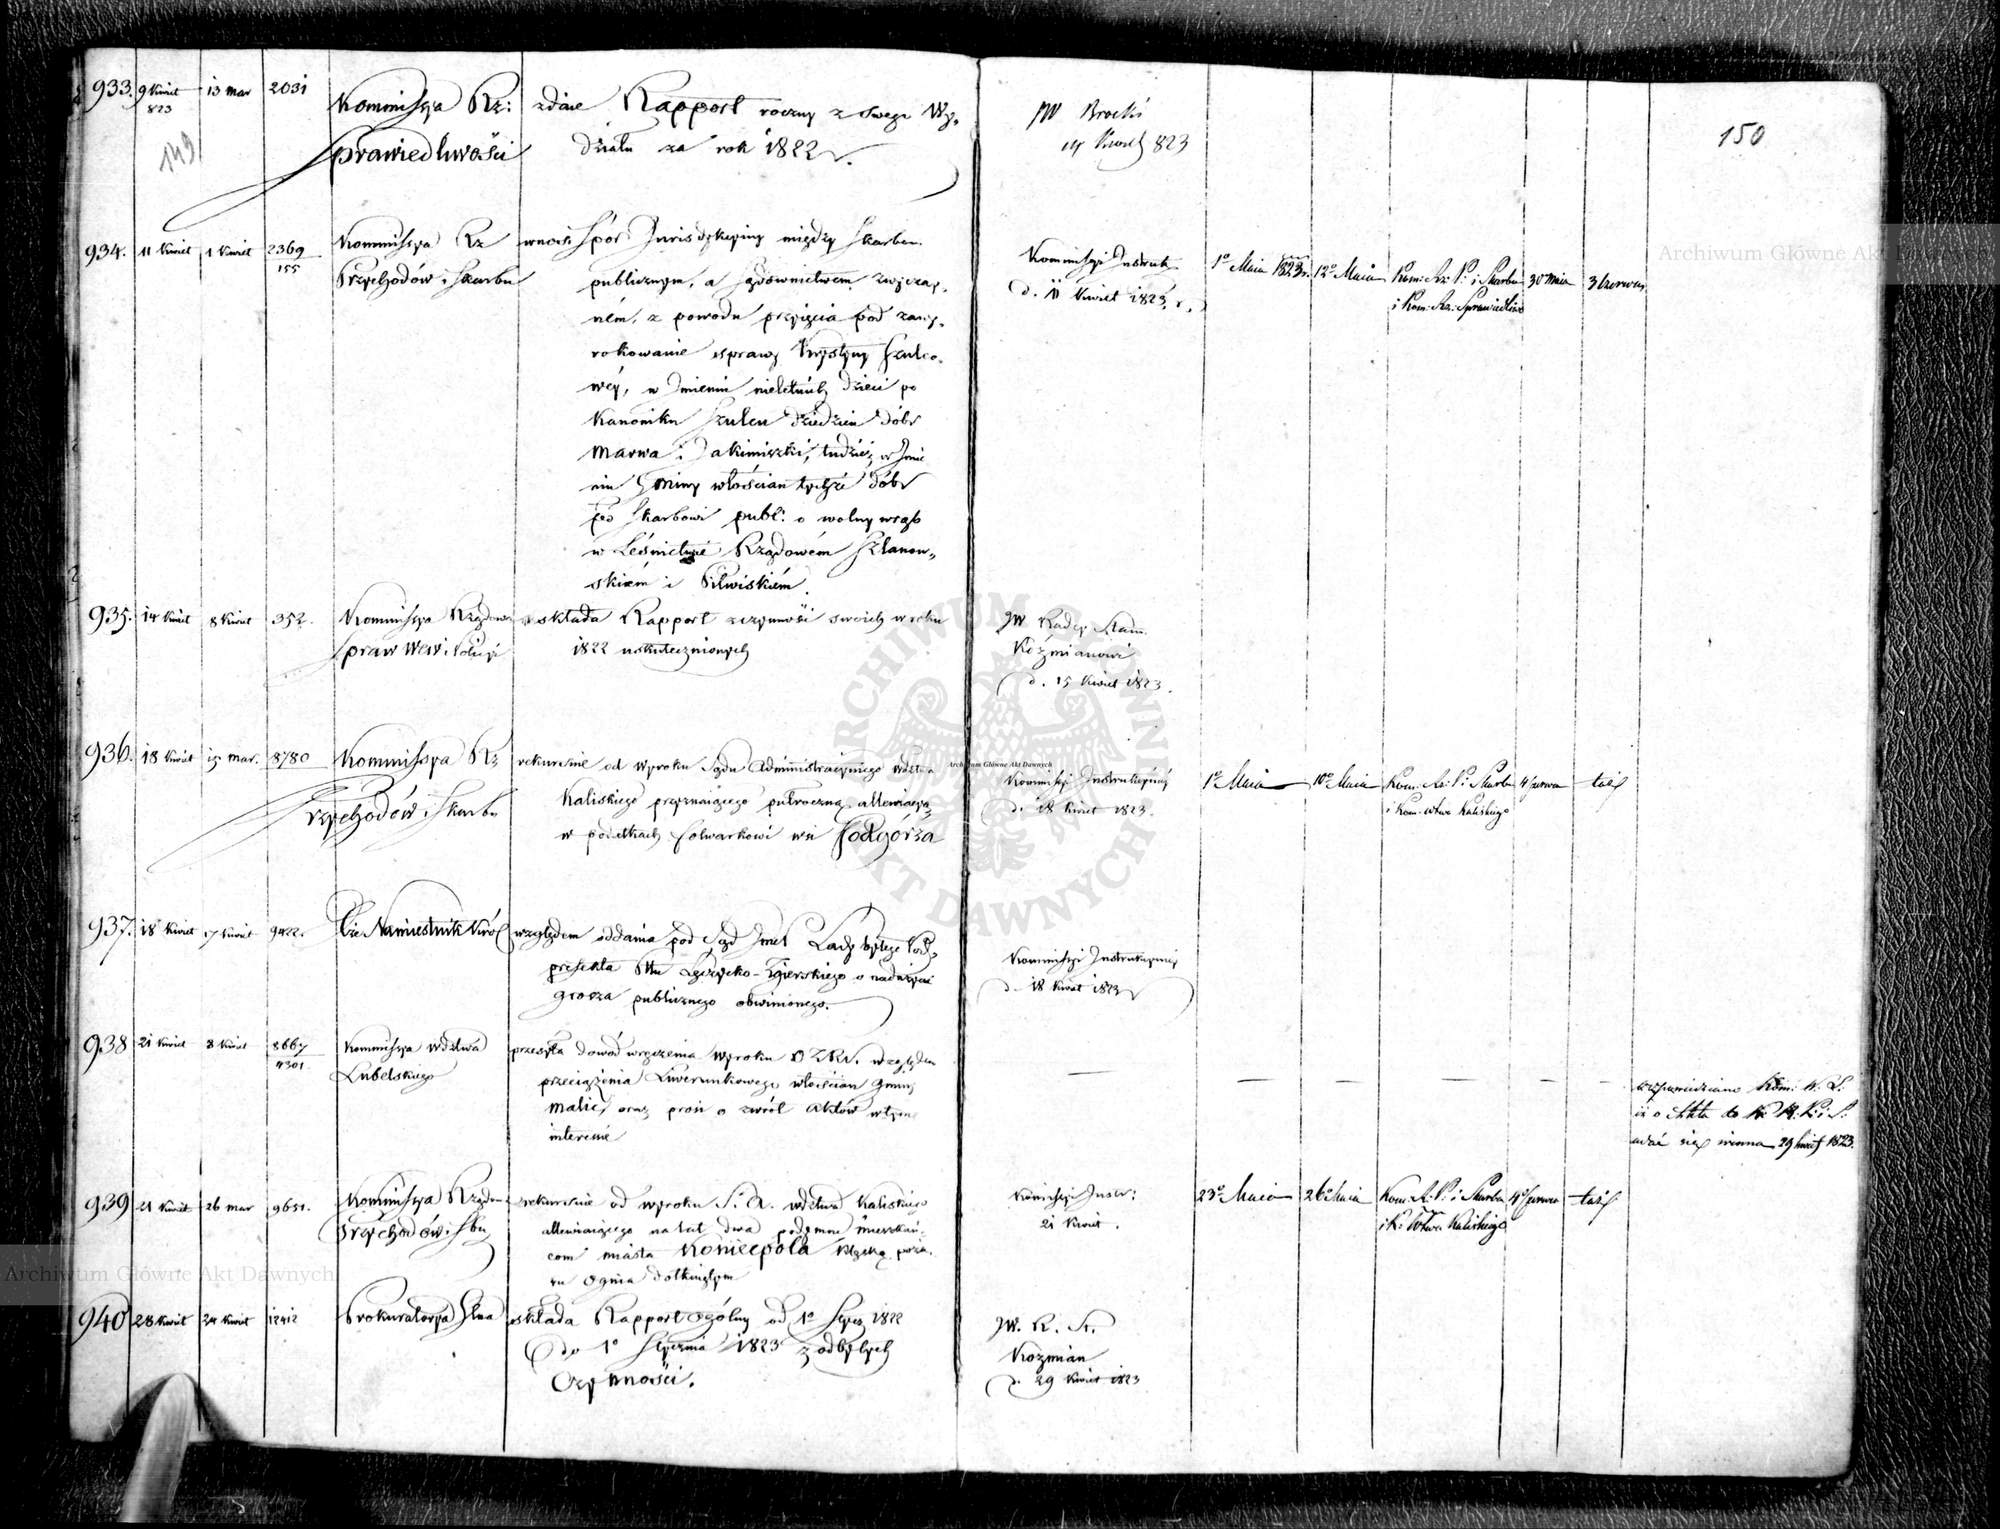 933. 9 Kwiet 823 13 mar 2031
Kommissya Rz: zdaie Rapport roczny z swego Wy-
Sprawiedliwości działu za rok 1822 r.
JW Brocki
14 Kwiet 823
149
150
934. 11 Kwiet 1 Kwiet 2369
155
Kommissya Rz wnosi Spór Jurisdykcyiny między Skarbem
Przychodów i Skarbu publicznym, a sądownictwem zwyczay-
ném, z powodu przyięcia pod zawy-
rokowanie sprawy Krystyny Szulco-
wéy, w Imieniu nieletnich dzieci po
Kanoniku Szulcu dziedzicu dóbr
Marwa i Jakimiszki, tudzież w Imie
niu Gminy włościan tychże dóbr
pko Skarbowi publ: o wolny wrąb
w Leśnictwie Rządowém Szlanow-
skiém i Pilwiskiém.
Kommissyi Instruk
d. 11 Kwiet 1823 r.
1o Maia 1823r. 12o Maia Kom: Rz: P: i Skarbu 30 Maia 3 Czerwca
i Kom: Rz: Sprawiedliw
935. 14 Kwiet 8 Kwiet 352.
Kommissya Rządowa składa Rapport z czynności swoich w roku
Spraw Wew: i Policyi 1822 uskutecznionych
JW Radcy Stanu
Koźmianowi
d. 15 Kwiet 1823.
936. 18 Kwiet 15 mar. 8780
Kommissya Rz rekursuie od wyroku Sądu Administracyinego wdztwa
Przychodów i Skarbu Kaliskiego przyznaiącego półroczną allewiacyą
w podatkach folwarkowi wsi Podgórza
Kommissyi Instrukcyiney
d. 18 Kwiet 1823.
1o Maia 10o Maia Kom: Rz: P: i Skarbu 4 Czerwca tak
i Kom: Wtwa Kaliskiego
937. 18 Kwiet 17 Kwiet 9422.
Xże Namiestnik Król względem oddania pod Sąd Imci Lady byłego Pod-
prefekta Ptu Łęczycko-Zgierskiego o nadużycie
grosza publicznego obwinionego.
Kommissyi Instrukcyiney
d. 18 Kwiet 1823
938 21 Kwiet 8 Kwiet 8667
4301
Kommissya wdztwa przesyła dowód wręczenia wyroku względem
Lubelskiego przeciążenia Liwerunkowego włościan Gminy
Malic, oraz prosi o zwrót Aktów w tym
interesie
odpowiedziano Kom: W. L:
iż o Akta do K: R: P: i S:
udać się winna 29 Kwiet 1823.
939 21 Kwiet 26 mar 9651.
Kommissya Rządowa rekursuie od wyroku S. A. wdztwa Kaliskiego
Przychodów i Sbu allewiaiącego na lat dwa podymne mieszkań-
com miasta Koniecpola klęską poża-
ru Ognia dotkniętym
Kommissyi Instr:
21 Kwiet.
23o Maia 26o Maia Kom: R: P: i Skarbu 4 Czerwca tak
i K: Wtwa Kaliskiego
940 28 Kwiet 24 Kwiet 12412
Prokuratorya Glna składa Rapport ogólny od 1o Stycz 1822
do 1o Stycznia 1823 z odbytych
Czynności.
JW. R. St.
Koźmian
d. 29 Kwiet 1823
Archiwum Główne Akt Dawnych
ARCHIWUM GŁÓWNE AKT DAWNYCH
Archiwum Główne Akt Dawnych
Archiwum Główne Akt Dawnych